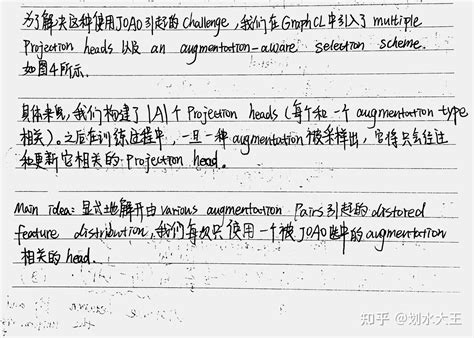 为了解决这种使用JOAO引起的challenge,我们在GraphCL中引入了multiple
Projection heads以及 an augmentation-aware selection scheme.
如图4所示.
具体来说,我们构建了|A|个Projection heads(每个和一个augmentation type
相关)。之后在训练过程中,一旦一种augmentation被采样出,它将只会经过
和更新它相关的Projection head。
Main idea:显式地解开由various augmentation Pairs引起的distored
feature distribution,我们每次只使用一个被JOAO选中的augmentation
相关的head.
知乎 @划水大王